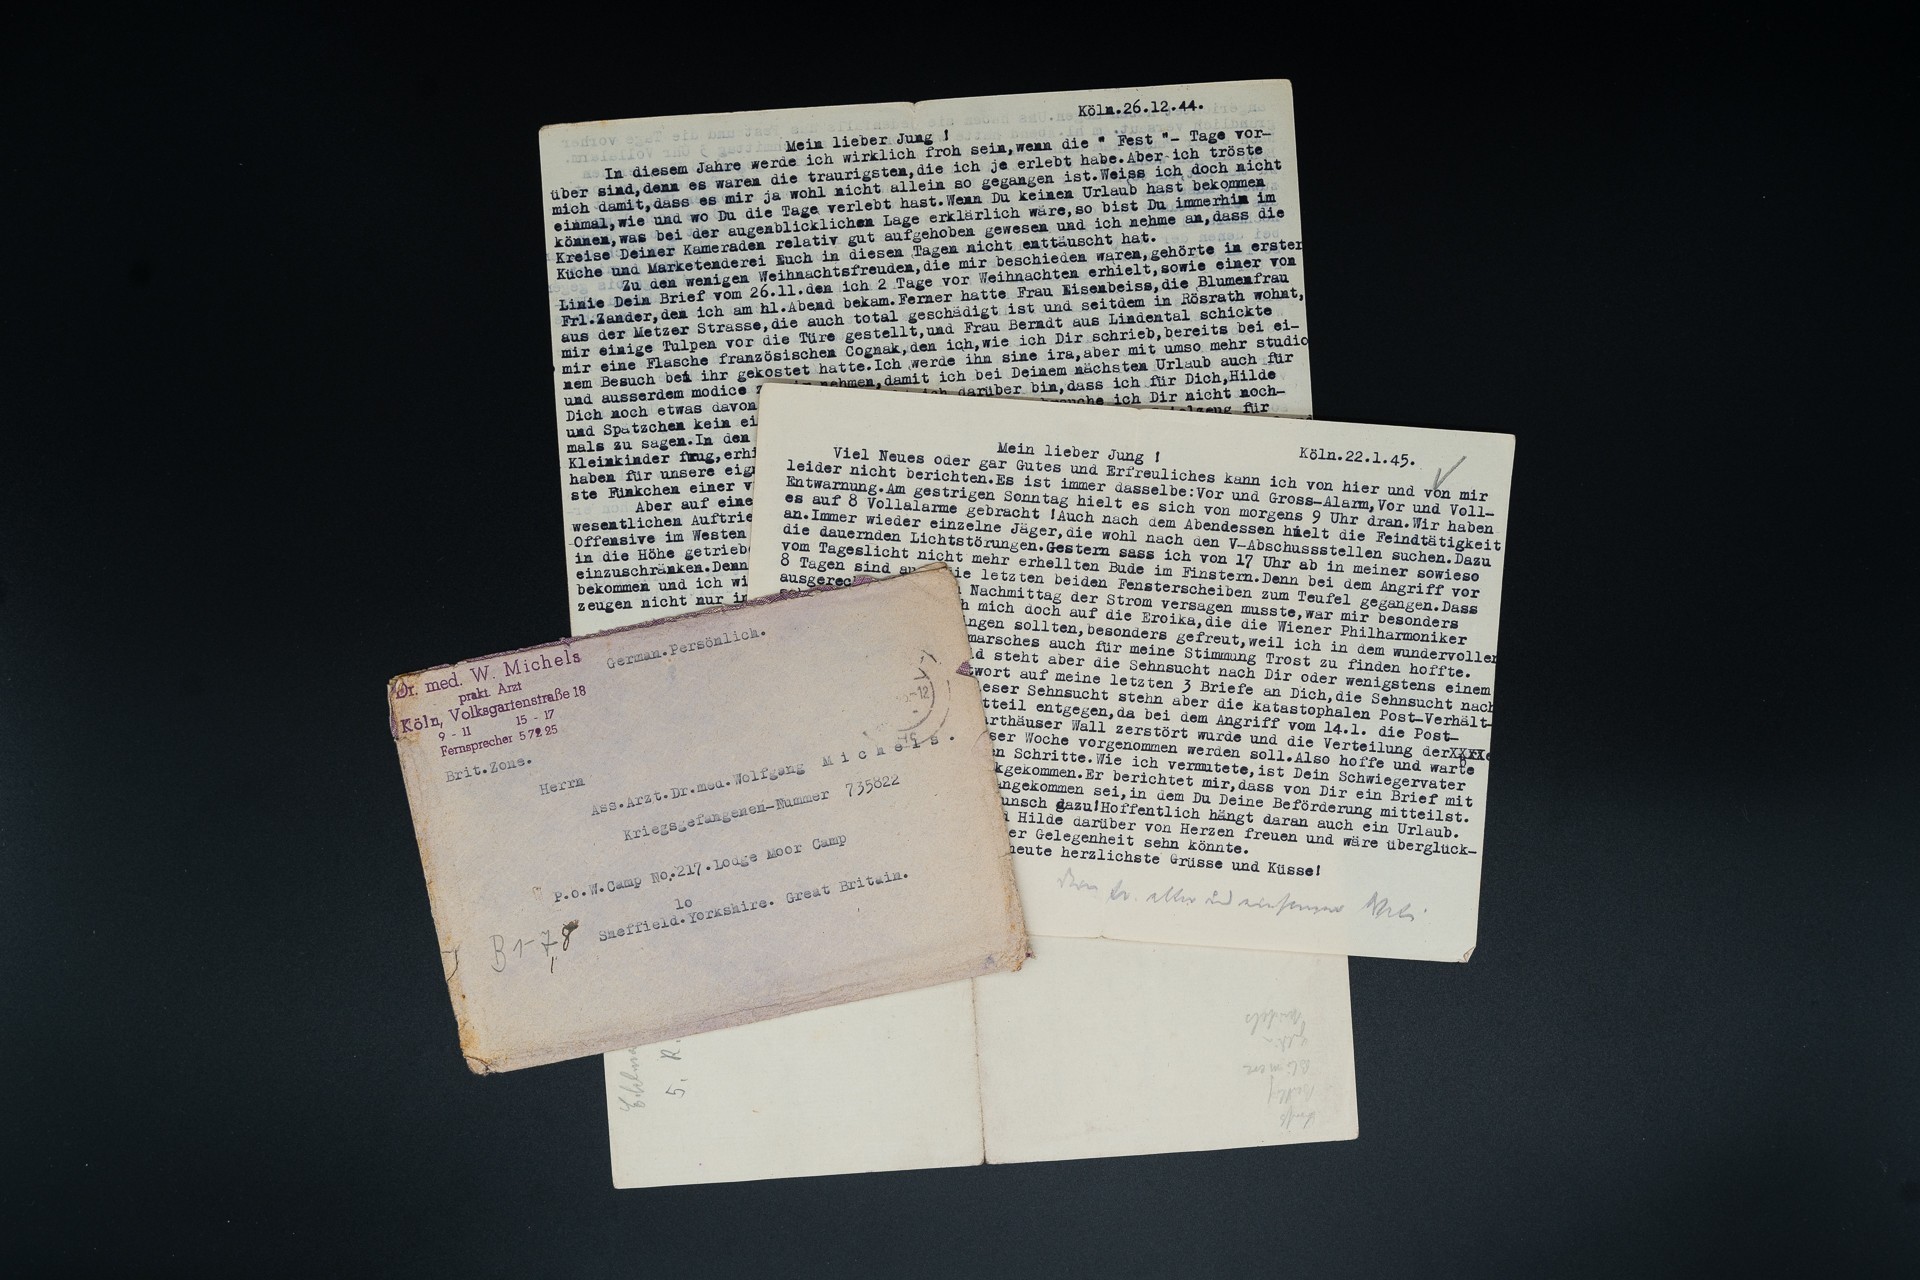 Köln.26.12.44.
Mein lieber Jung !
In diesem Jahre werde ich wirklich froh sein,wenn die " Fest "- Tage vor-
über sind,denn es waren die traurigsten,die ich je erlebt habe.Aber ich tröste
mich damit,dass es mir ja wohl nicht allein so gegangen ist.Weiss ich doch nicht
einmal,wie und wo Du die Tage verlebt hast.Wenn Du keinen Urlaub hast bekommen
können,was bei der augenblicklichen Lage erklärlich wäre,so bist Du immerhin im
Kreise Deiner Kameraden relativ gut aufgehoben gewesen und ich nehme an,dass die
Küche und Marketenderei Euch in diesen Tagen nicht enttäuscht hat.
Zu den wenigen Weihnachtsfreuden,die mir beschieden waren,gehörte in erster
Linie Dein Brief vom 26.11.den ich 2 Tage vor Weihnachten erhielt,sowie einer von
Frl.Zander,den ich am hl.Abend bekam.Ferner hatte Frau Eisenbeiss,die Blumenfrau
aus der Metzer Strasse,die auch total geschädigt ist und seitdem in Rösrath wohnt,
mir einige Tulpen vor die Türe gestellt,und Frau Berndt aus Lindental schickte
mir eine Flasche französischen Cognak,den ich,wie ich Dir schrieb,bereits bei ei-
nem Besuch bei ihr gekostet hatte.Ich werde ihn sine ira,aber mit umso mehr studio
und ausserdem modice nehmen,damit ich bei Deinem nächsten Urlaub auch für
Dich noch etwas davon ich darüber bin,dass ich für Dich,Hilde
und Spätzchen kein ei ich Dir nicht noch-
mals zu sagen.In den für
Kleinkinder frug,erhi
haben für unsere eig
ste Fünkchen einer v
Aber auf eine
wesentlichen Auftrie
Offensive im Westen
in die Höhe getriebe
einzuschränken.Denn
bekommen und ich wi
zeugen nicht nur in
Mein lieber Jung ! Köln.22.1.45.
Viel Neues oder gar Gutes und Erfreuliches kann ich von hier und von mir
leider nicht berichten.Es ist immer dasselbe:Vor und Gross-Alarm,Vor und Voll-
Entwarnung.Am gestrigen Sonntag hielt es sich von morgens 9 Uhr dran.Wir haben
es auf 8 Vollalarme gebracht !Auch nach dem Abendessen hielt die Feindtätigkeit
an.Immer wieder einzelne Jäger,die wohl nach den V-Abschussstellen suchen.Dazu
die dauernden Lichtstörungen.Gestern sass ich von 17 Uhr ab in meiner sowieso
vom Tageslicht nicht mehr erhellten Bude im Finstern.Denn bei dem Angriff vor
8 Tagen sind die letzten beiden Fensterscheiben zum Teufel gegangen.Dass
ausgerec Nachmittag der Strom versagen musste,war mir besonders
h mich doch auf die Eroika,die die Wiener Philharmoniker
ingen sollten,besonders gefreut,weil ich in dem wundervollen
marsches auch für meine Stimmung Trost zu finden hoffte.
d steht aber die Sehnsucht nach Dir oder wenigstens einem
twort auf meine letzten 3 Briefe an Dich,die Sehnsucht nach
ieser Sehnsucht stehn aber die katastophalen Post-Verhält-
tteil entgegen,da bei dem Angriff vom 14.1. die Post-
arthäuser Wall zerstört wurde und die Verteilung der
ser Woche vorgenommen werden soll.Also hoffe und warte
en Schritte.Wie ich vermutete,ist Dein Schwiegervater
kgekommen.Er berichtet mir,dass von Dir ein Brief mit
ngekommen sei,in dem Du Deine Beförderung mitteilst.
unsch dazu!Hoffentlich hängt daran auch ein Urlaub.
d Hilde darüber von Herzen freuen und wäre überglück-
er Gelegenheit sehn könnte.
heute herzlichste Grüsse und Küsse!
Dr. med. W. Michels
prakt. Arzt
Köln, Volksgartenstraße 18
9 - 11 15 - 17
Fernsprecher 5 72 25
German.Persönlich.
Brit.Zone.
Herrn
Ass.Arzt.Dr.med.Wolfgang M i c h e l s .
Kriegsgefangenen-Nummer 735822
P.o.W.Camp No.217.Lodge Moor Camp
10
Sheffield.Yorkshire. Great Britain.
B 1-78
5. R.